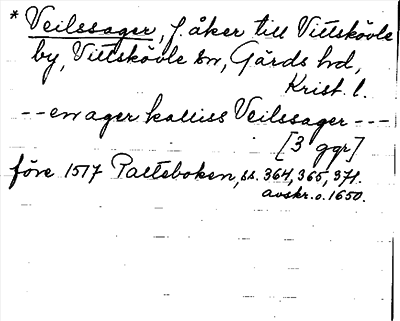 * Veilssager, f. åker till Vittskövle
by, Vittskövle sn, Gärds hd,
Krist. l.
-- en ager kalliss Veilssager ---
[3 ggr]
före 1517 Palteboken, ss. 364, 365, 371.
avskr. o. 1650.